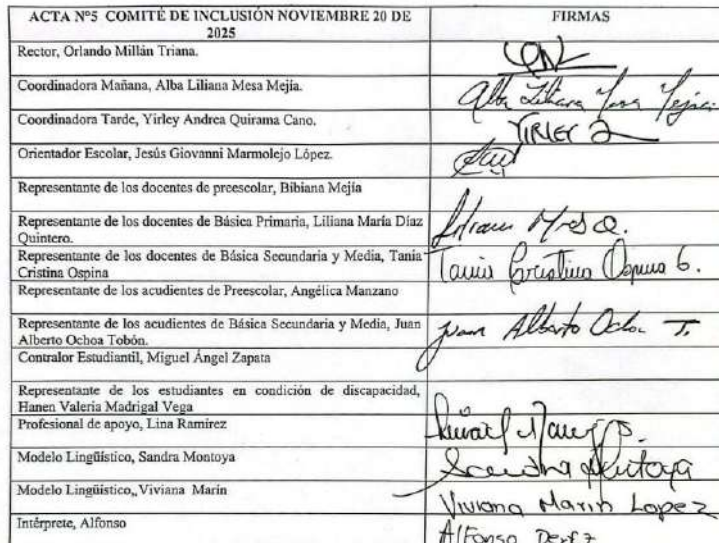 ACTA N°5 COMITÉ DE INCLUSIÓN NOVIEMBRE 20 DE
2025
FIRMAS
Rector, Orlando Millán Triana.
Coordinadora Mañana, Alba Liliana Mesa Mejía.
Alba Liliana Mesa Mejía
Coordinadora Tarde, Yirley Andrea Quirama Cano.
YIRLEY
Orientador Escolar, Jesús Giovanni Marmolejo López.
Representante de los docentes de preescolar, Bibiana Mejía
Representante de los docentes de Básica Primaria, Liliana María Díaz
Quintero.
Representante de los docentes de Básica Secundaria y Media, Tania
Cristina Ospina
Tania Cristina Ospina G.
Representante de los acudientes de Preescolar, Angélica Manzano
Representante de los acudientes de Básica Secundaria y Media, Juan
Alberto Ochoa Tobón.
Juan Alberto Ochoa T.
Contralor Estudiantil, Miguel Ángel Zapata
Representante de los estudiantes en condición de discapacidad,
Hanen Valeria Madrigal Vega
Profesional de apoyo, Lina Ramírez
Modelo Lingüístico, Sandra Montoya
Sandra Montoya
Modelo Lingüístico,, Viviana Marín
Viviana Marin Lopez
Intérprete, Alfonso
Alfonso